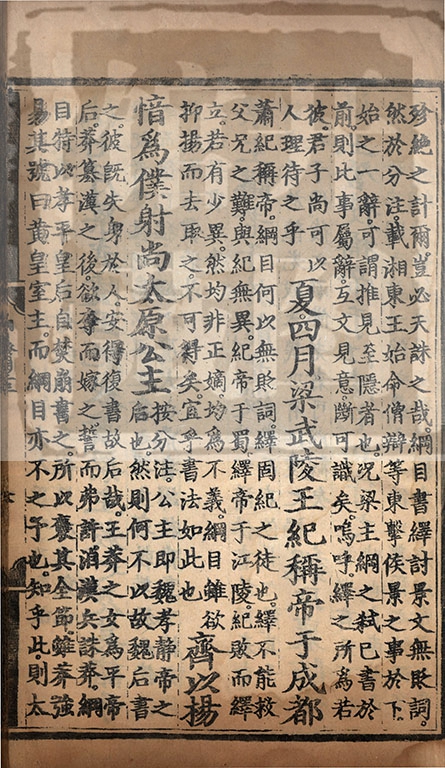 殄絶之計爾。豈必天誅之哉。綱目書繹討景文無貶詞。
然於分注。載湘東王始命僧辯等東擊侯景之事。於下
始之一辭。可謂推見至隱者也。况梁主綱之弑。已書於
前。則此事屬辭。互文見意。斷可識矣。嗚呼。繹之所爲若
彼。君子尚可以
人理待之乎
夏四月梁武陵王紀稱帝于成都
蕭紀稱帝。綱目何以無貶詞。繹固紀之徒也。繹不能救
父兄之難。與紀無異。紀帝于蜀。繹帝于江陵。紀敗而繹
立。若有少異。然均非正嫡。均爲不義。綱目雖欲
抑揚而去取之。不可得矣。宜乎書法如此也
齊以揚
愔爲僕射尚太原公主
按分注。公主即魏孝静帝之
后也。然則何不以故魏后書
之。彼既失身於人。安得復書故后哉。王莽之女爲平帝
后。莽簒漢之後。欲奪而嫁之。誓而弗許。消漢兵誅莽。綱
目特以孝平皇后自焚崩書之。所以襃其全節。雖莽強
易其號曰黄皇室主。而綱目亦不之予也。知乎此。則太